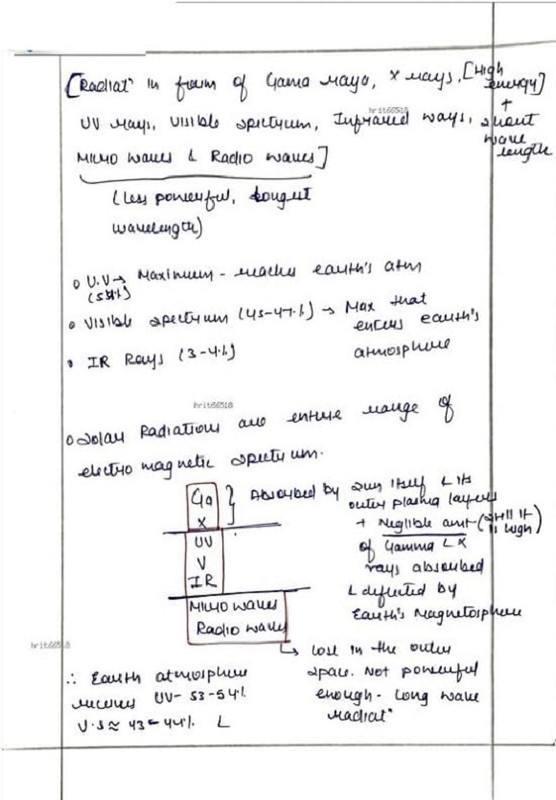 [Radiatⁿ in form of Gama rays, X rays, [High energy]
+
UV rays, Visible spectrum, Infrared ways, short wave length
Micro waves & Radio waves]
(less powerful, longest
wavelength)
hrit66518
• U.V → Maximum - reaches earth's atm
(53%)
• Visible spectrum (45-47%) → Max that
enters earth's
atmosphere
• IR Rays (3-4%)
hrit66518
• Solar Radiations are entire range of
electro magnetic spectrum.
Ga
X
} Absorbed by sun itself & its
outer plasma layers
+ Neglible amt (still it is high)
of Gamma & X
rays absorbed
& deflected by
Earth's Magnetosphere
UV
V
IR
Micro waves
Radio waves
hrit66518
↳ Lost in the outer
space. Not powerful
enough - Long wave
Radiatⁿ
∴ Earth atmosphere
receives UV - 53-54%
V.S ≈ 43 - 44% &